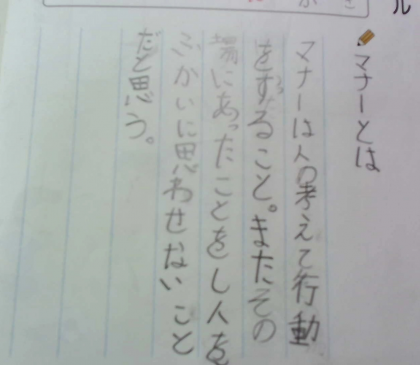 マナーとは
マナーは人の考えて行動
をすること。またその
場にあったことをし人を
ふかいに思わせないこと
だと思う。